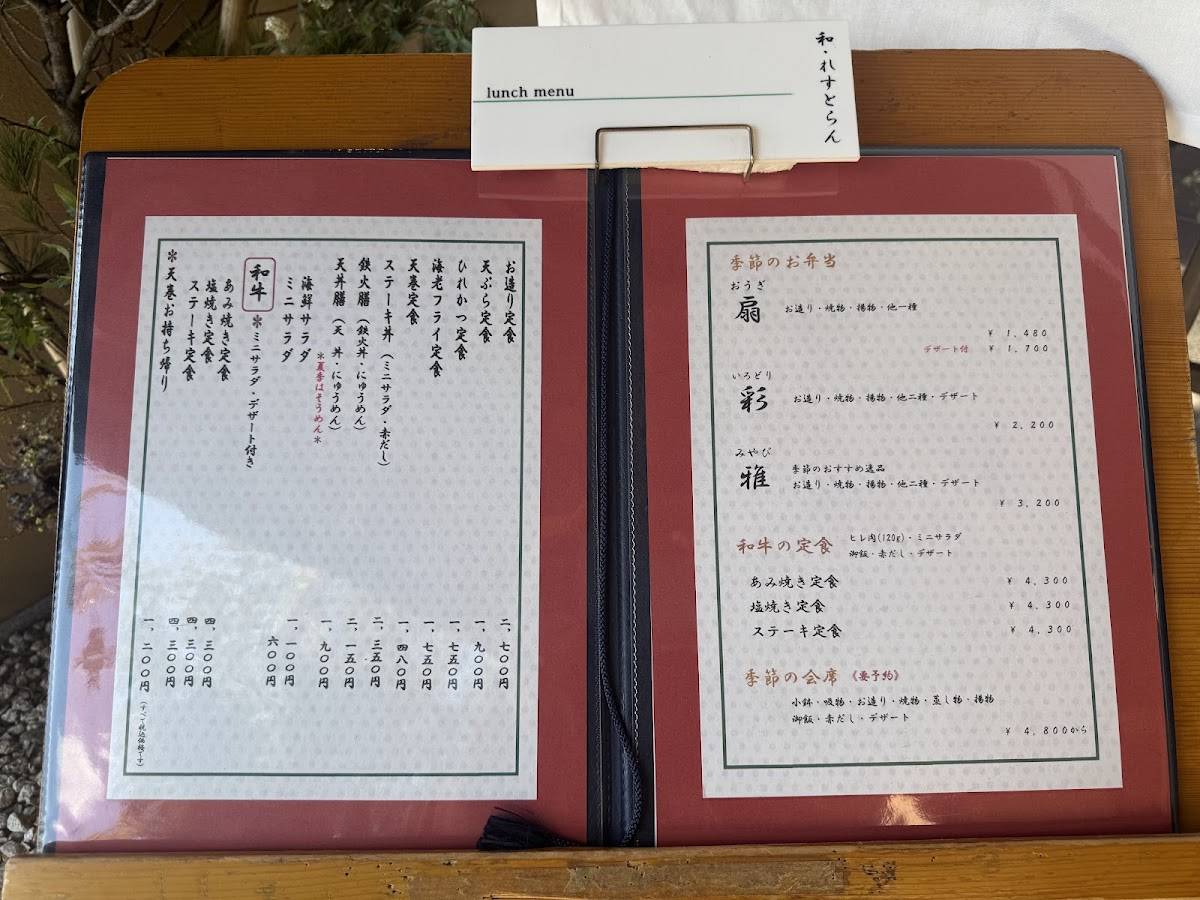 lunch menu
和・れすとらん
お造り定食 二、七〇〇円
天ぷら定食 一、九〇〇円
ひれかつ定食 一、七五〇円
海老フライ定食 一、七五〇円
天巻定食 一、四八〇円
ステーキ丼（ミニサラダ・赤だし） 二、三五〇円
鉄火膳（鉄火丼・にゅうめん） 二、一五〇円
天丼膳（天 丼・にゅうめん） 一、九〇〇円
＊夏季はそうめん＊
海鮮サラダ 一、一〇〇円
ミニサラダ 六〇〇円
和牛 ＊ミニサラダ・デザート付き
あみ焼き定食 四、三〇〇円
塩焼き定食 四、三〇〇円
ステーキ定食 四、三〇〇円
＊天巻お持ち帰り 一、二〇〇円
（すべて税込価格です）
季節のお弁当
おうぎ
扇 お造り・焼物・揚物・他一種
¥ 1,480
デザート付 ¥ 1,700
いろどり
彩 お造り・焼物・揚物・他二種・デザート
¥ 2,200
みやび
雅 季節のおすすめ逸品
お造り・焼物・揚物・他二種・デザート
¥ 3,200
和牛の定食 ヒレ肉(120g)・ミニサラダ
御飯・赤だし・デザート
あみ焼き定食 ¥ 4,300
塩焼き定食 ¥ 4,300
ステーキ定食 ¥ 4,300
季節の会席 《要予約》
小鉢・吸物・お造り・焼物・蒸し物・揚物
御飯・赤だし・デザート
¥ 4,800から